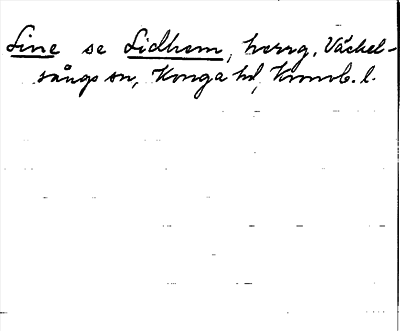 Line se Lidhem, herrg, Väckel-
sångs sn, Konga hd, Kronob. l.